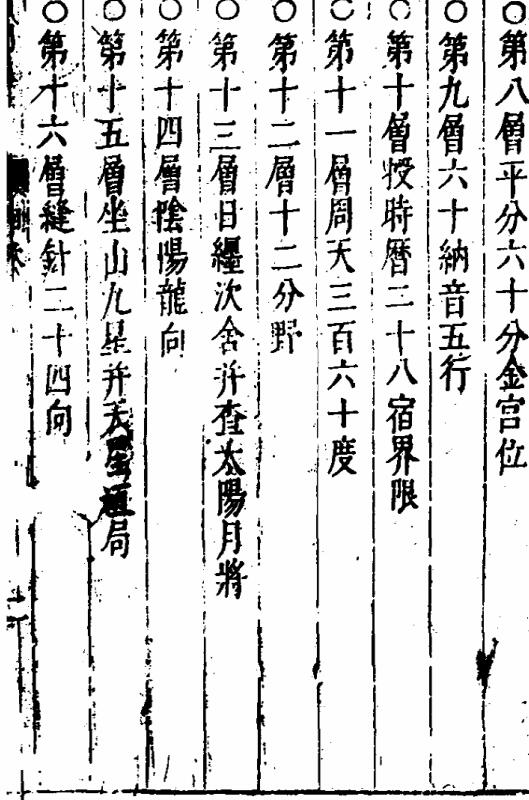 ○第八層平分六十分金宮位
○第九層六十納音五行
○第十層授時曆二十八宿界限
○第十一層周天三百六十度
○第十二層十二分野
○第十三層日纏次舍并查太陽月將
○第十四層陰陽龍向
○第十五層坐山九星并天星逼局
○第十六層縫針二十四向